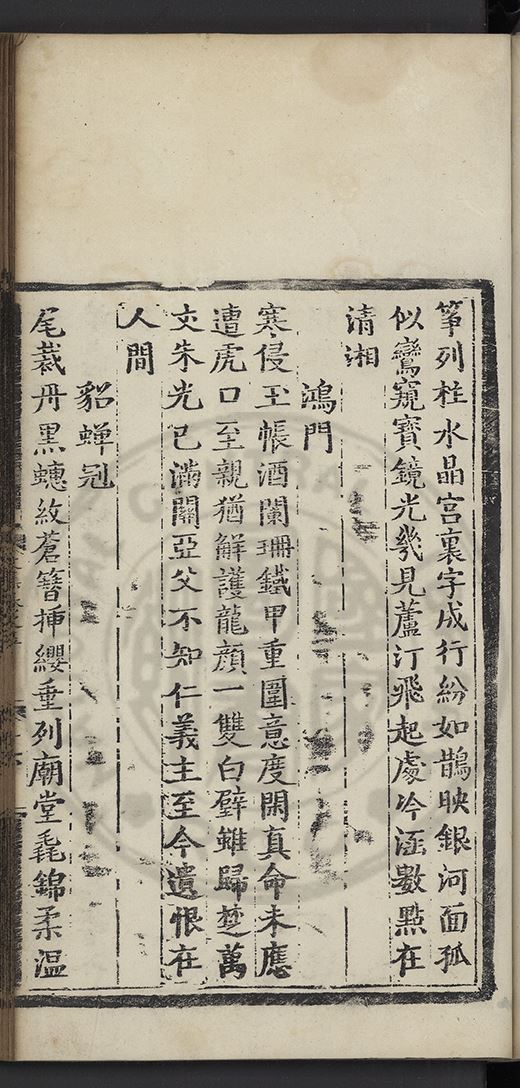 箏列柱水晶宮裏字成行紛如鵲映銀河面孤
似鸞窺寶鏡光幾見蘆汀飛起處冷涵數㸃在
清湘
鴻門
寒侵玉帳酒闌珊鐵甲重圍意度閑真命未應
遭虎口至親猶解護龍顔一雙白璧雖歸楚萬
丈朱光已滿關亞父不知仁義主至今遺恨在
人間
貂蟬冠
尾裁丹黑蟪紋蒼簪揷纓垂列廟堂毳錦柔溫